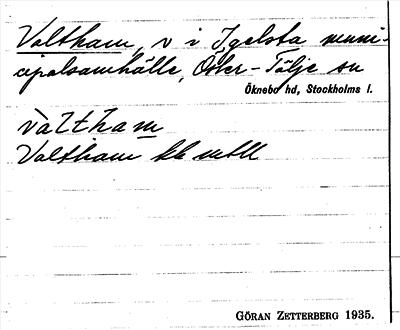 Valtham, v i Igelsta muni-
cipalsamhälle, Öster-Tälje sn
Öknebo hd, Stockholms l.
vàltham
Valtham
GÖRAN ZETTERBERG 1935.